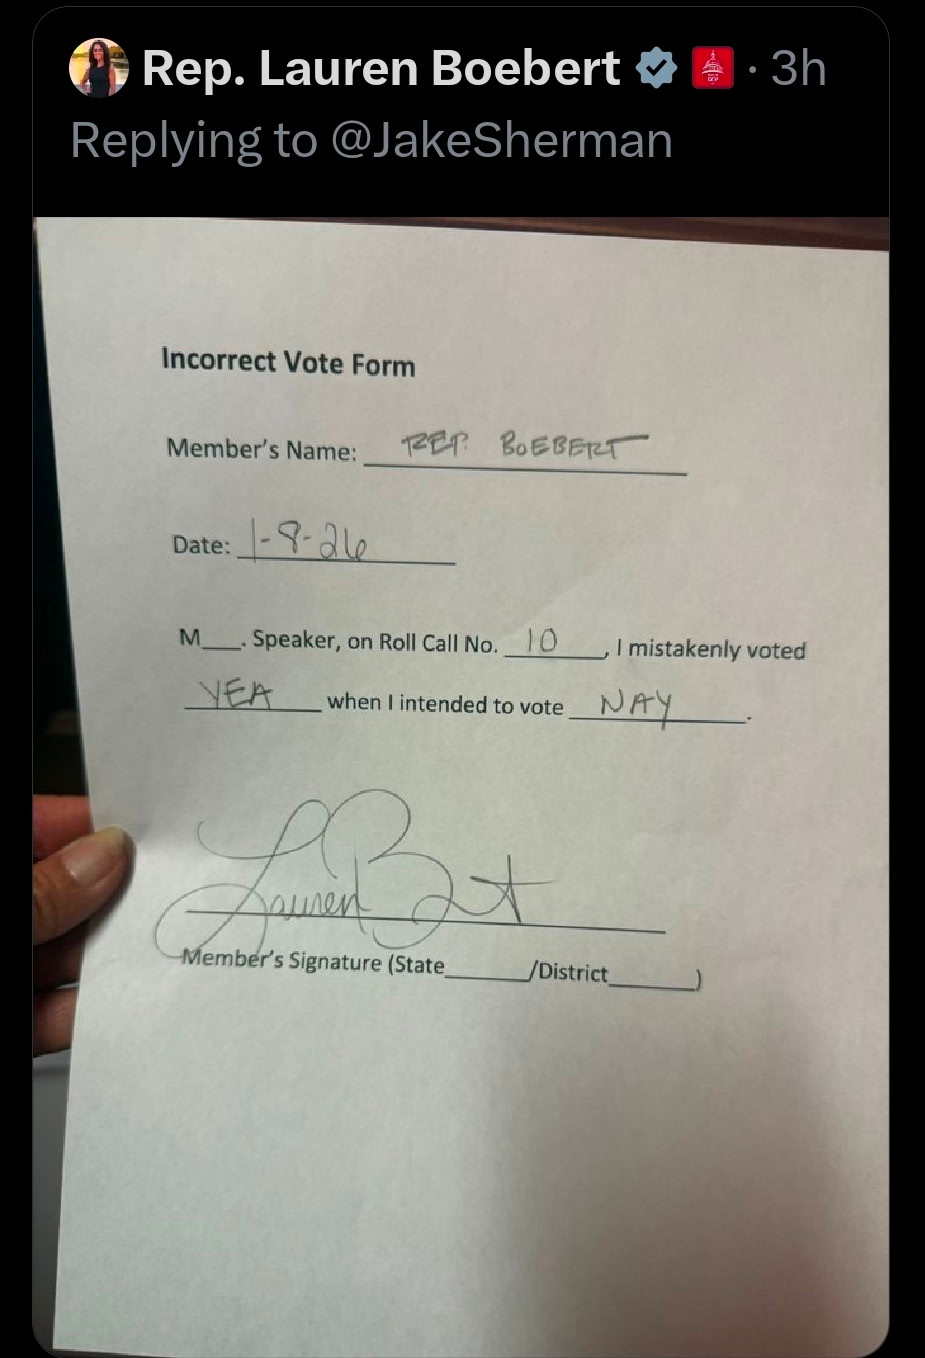 Rep. Lauren Boebert · 3h
Replying to @JakeSherman
Incorrect Vote Form
Member's Name: REP. BOEBERT
Date: 1-8-26
M___. Speaker, on Roll Call No. 10, I mistakenly voted
YEA when I intended to vote NAY.
Lauren B
Member's Signature (State______/District______)